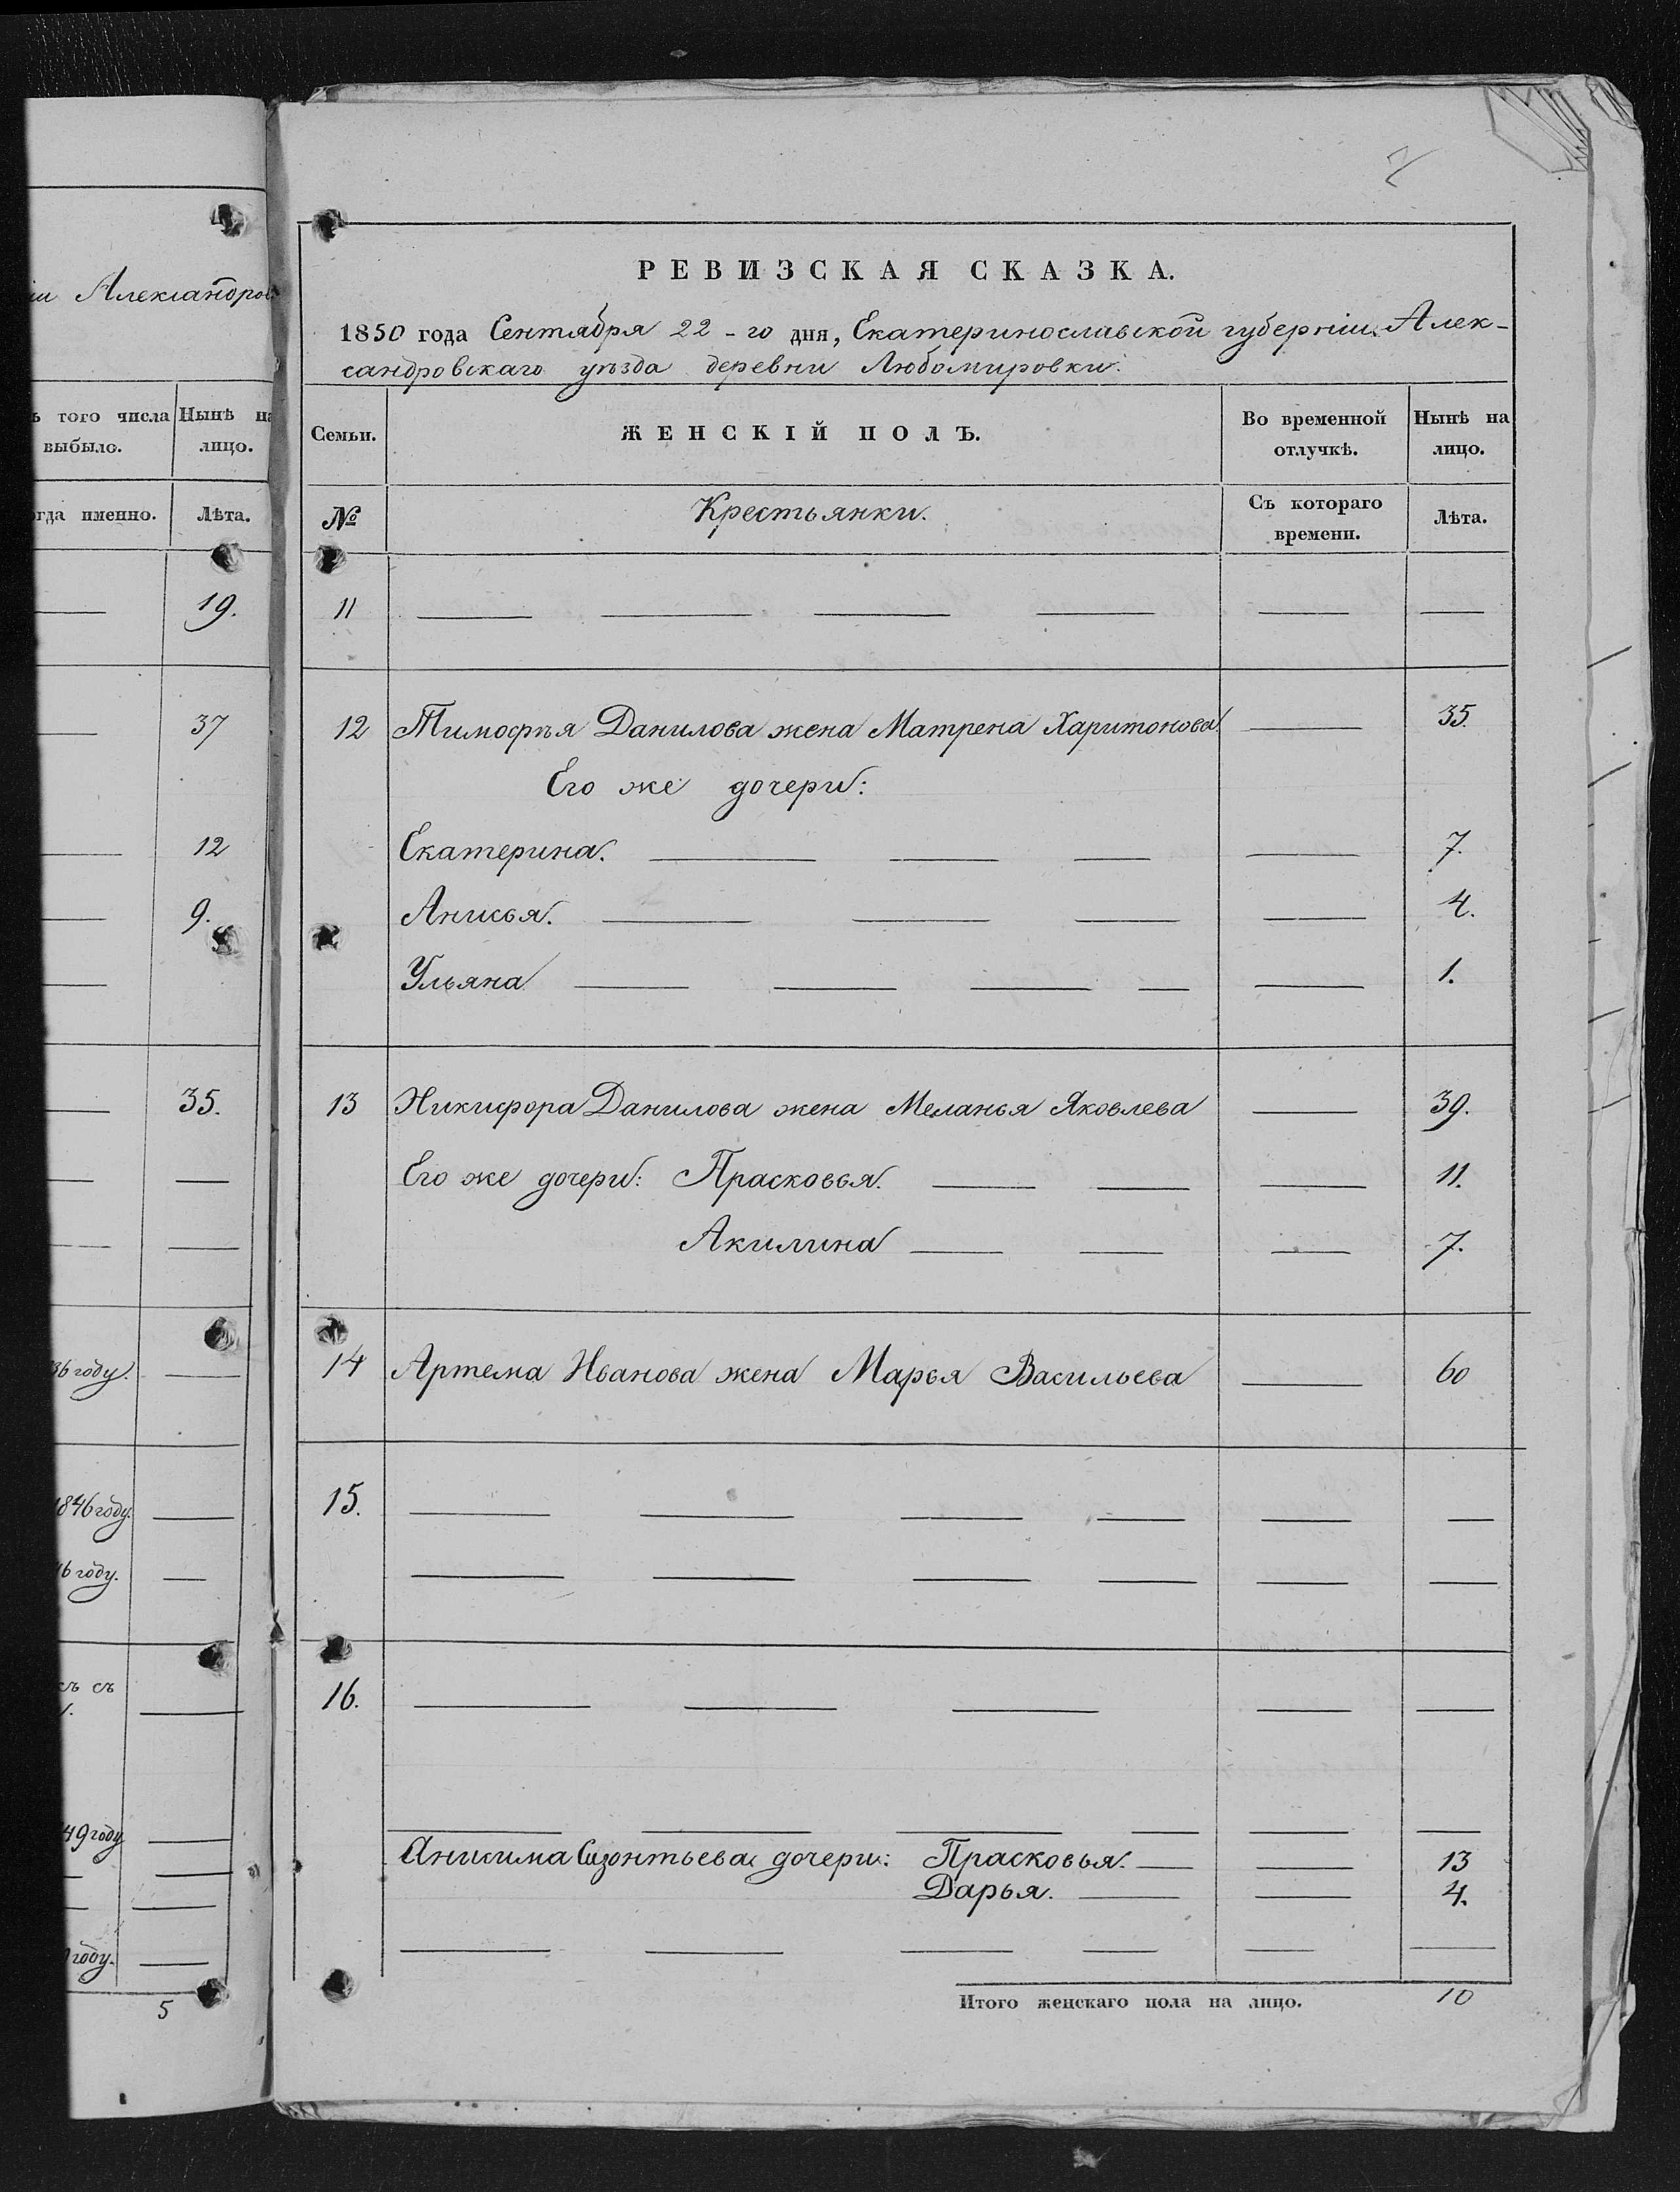 іи Александров
ъ того числа Нынѣ на
выбыло. лицо.
огда именно. Лѣта.
19.
37
12
9.
35.
36 году.
1846 году.
46 году.
съ съ
49 году
году.
5
2
РЕВИЗСКАЯ СКАЗКА.
1850 года Сентября 22-го дня, Екатеринославской губерніи, Алек-
сандровскаго уѣзда деревни Любомировки.
Семьи. ЖЕНСКІЙ ПОЛЪ. Во временной отлучкѣ. Нынѣ на лицо.
№ Крестьянки. Съ котораго времени. Лѣта.
11
12 Тимофѣя Данилова жена Матрена Харитонова 35.
Его же дочери:
Екатерина. 7.
Анисья. 4.
Ульяна 1.
13 Никифора Данилова жена Меланья Яковлева 39.
Его же дочери: Прасковья. 11.
Акилина 7.
14 Артема Иванова жена Марья Васильева 60
15.
16.
Анисима Сизонтьева дочери: Прасковья. 13
Дарья. 4.
Итого женскаго пола на лицо. 10